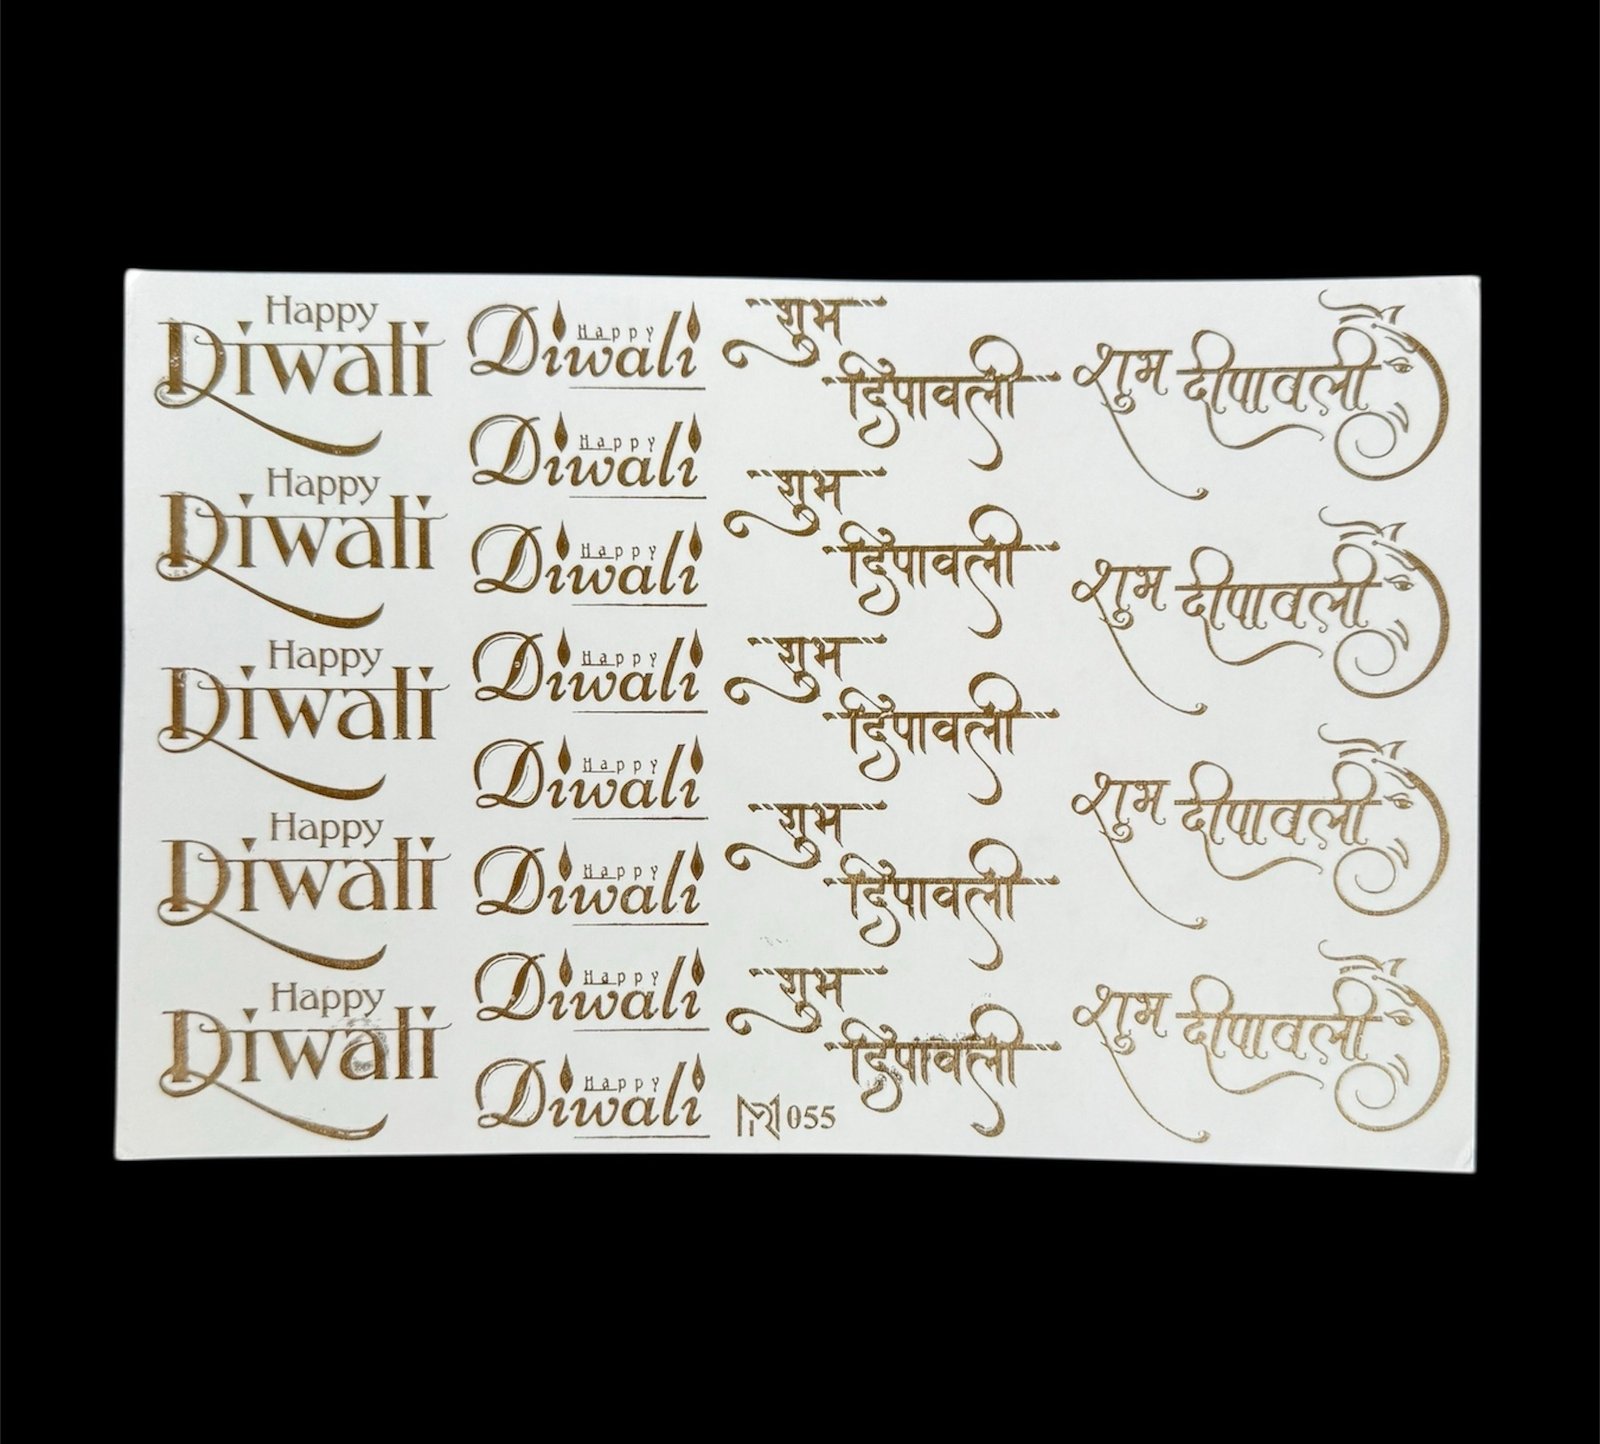 Happy
Diwali
Happy
Diwali
Happy
Diwali
Happy
Diwali
Happy
Diwali
Happy
Diwali
Happy
Diwali
Happy
Diwali
Happy
Diwali
Happy
Diwali
Happy
Diwali
Happy
Diwali
Happy
Diwali
शुभ
दिपावली
शुभ
दिपावली
शुभ
दिपावली
शुभ
दिपावली
शुभ
दिपावली
055
शुभ दीपावली
शुभ दीपावली
शुभ दीपावली
शुभ दीपावली